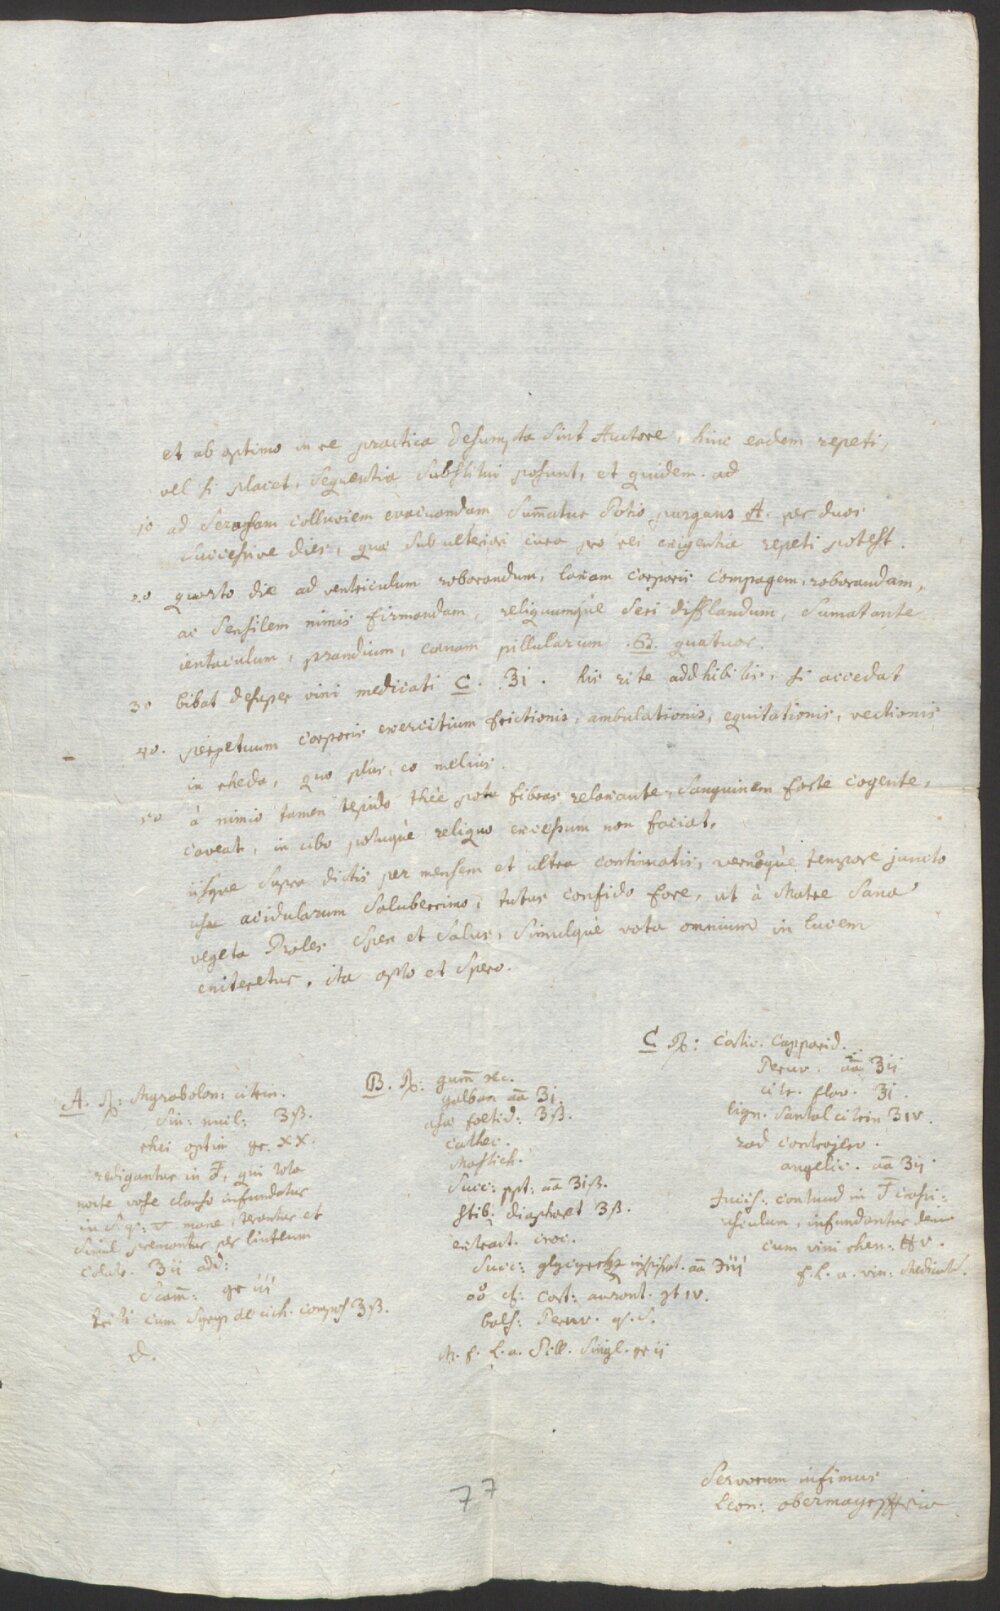 et ab optimo in re practica desumpta sint Autore, hinc eadem repeti,
vel si placet, sequentia substitui possunt, et quidem. ad
1o ad serosam colluviem evacuandam sumatur potio purgans A. per duos
successive dies, quae sub ulteriori cura pro rei exigentia repeti potest.
2o quarto die ad ventriculum roborandum, laxam corporis compagem roborandam,
ac sensilem nimis firmandam, reliquumque seri difflandum, sumat ante
ientaculum, prandium, coenam pillularum B. quatuor.
3o bibat desuper vini medicati C. ℥i. his rite addhibitis, si accedat
4o. perpetuum corporis exercitium frictionis, ambulationis, equitationis, vectionis
in rheda, quo plus, eo melius.
5o à nimio tamen tepido thée potu fibras relaxante, sanguinem forte cogente,
caveat, in cibo potuque reliquo excessum non faciat,
iisque supra dictis per mensem et ultra continuatis, vernoque tempore juncto
usu acidularum saluberrimo, tutus confido fore, ut à Matre sana
vegeta Proles spes et salus, simulque vota omnium in lucem
eniteretur, ita opto et spero.
A. ℞: Myrabolon: citrin.
Sin: muil: ʒß.
rhei optim gr. xx.
redigantur in F, qui tota
nocte vase clauso infundatur
in s. q. v mane, terantur et
simul premantur per linteum
colat. ℥ii add:
Scam̄: gr iii
triti cum Syrup de cich. compos ℥ß.
D.
B. ℞: gum̄ sec.
galban aā ʒi.
asae foetid: ʒß.
cathec.
Mastich.
Succ: ppt: aā ʒiß.
stib: diaphoret ʒß.
extract. croc.
Succ: glycyrrhz inspissat. aā ℈iii
oō ch: cort: aurant. gt iv.
bals: Peruv. q. s.
M. f. l. a. Pill. singl. gr ii
C ℞: Cortic. Capparid.
Peruv. aā ʒii
citr. flav. ʒi.
lign. Santal citrin ʒiv.
rad contrajerv.
angelic. aā ʒii
Incis. contund in
infundantur dein
cum vini rhen: ℔ v.
f. l. a. vin: Medicat.
Servorum infimus
Leon: obermayr
77